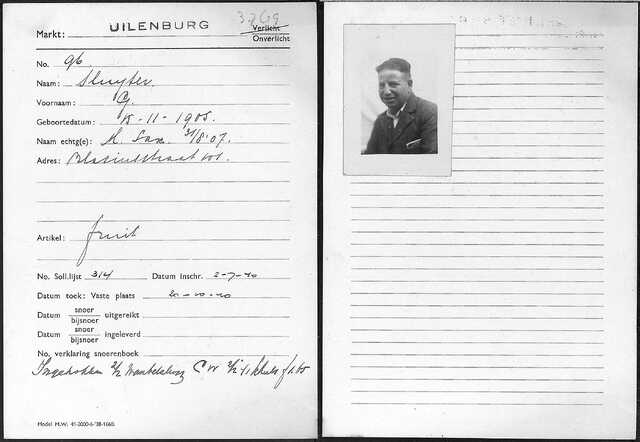 Markt: UILENBURG
3269
Verlicht
Onverlicht
No. 96
Naam: Sluyter.
Voornaam:
Geboortedatum: 15-11-1905.
Naam echtg(e): M. Sax. 31/8-07.
Adres: Blasiusstraat 101.
Artikel: fruit
No. Soll.lijst 314 Datum Inschr. 2-7-40
Datum toek: Vaste plaats 20-10-40
Datum snoer bijsnoer uitgereikt
Datum snoer bijsnoer ingeleverd
No. verklaring snoerenboek
Ingetrokken
Model M.W. 41-2000-6-'38-1660.